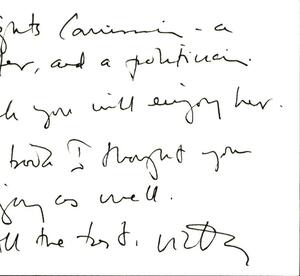 ghts Commission - a
er, and a politician.
k you will enjoy her.
book I thought you
joy as well.
ll the best,